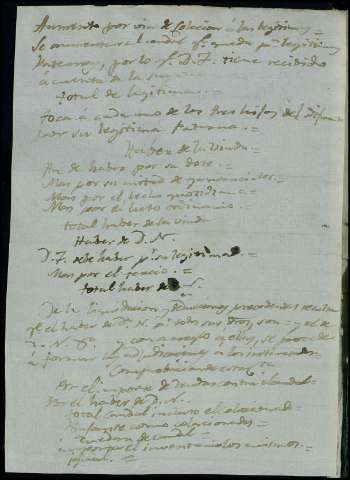 Aumento por via de colacion a las legitimas
Se aumentara el caudal qe. queda pa. legitimas
por lo qe. D. F. tiene recibido
á cuenta de la suya
total de legitimas =
toca a cada uno de los tres hijos del Difunto
por su legitima Paterna =
Haber de la viuda =
Ha de haber por su dote =
Mas por su mitad de gananciales =
Mas por el lecho quotidiano =
Mas por el luto ordinario =
total haber de la viuda
Haber de D. N.
D. F. debe haber pr. su legitima =
Mas por el tercio =
total haber de N. =
De la liquidacion y deducciones precedentes resulta
qe. el haber de Da. N. pr. todos sus dros, son = y el de
N. N. y con arreglo a ellos, se procede
á formar las adjudicaciones a los interesados =
Comprobacion de esta
Por el importe de deudas contra el caudal =
Por el haber de D. N. =
total caudal incluso el
como colacionados =
quedan de caudal =
importe el inventario los mismos =
igual =